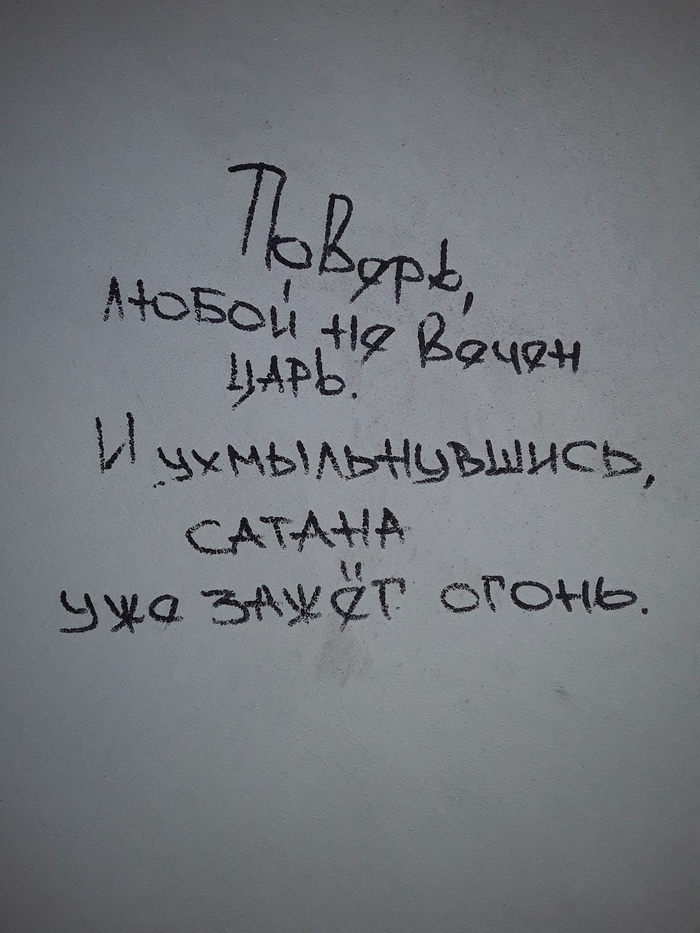 Поверь,
любой не вечен
царь.
И ухмыльнувшись,
САТАНА
уже зажёг огонь.